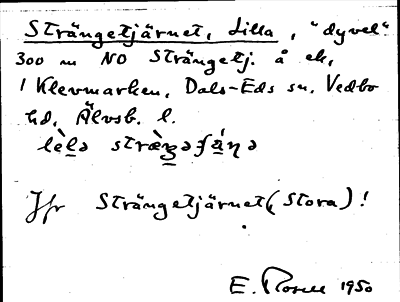 Strängetjärnet, Lilla, "dyvel"
300 m NO Strängetj. å ek,
1 Klevmarken, Dals-Eds sn. Vedbo
hd, Älvsb. l.
Jfr Strängetjärnet (Stora)!
E. Rosell 1950